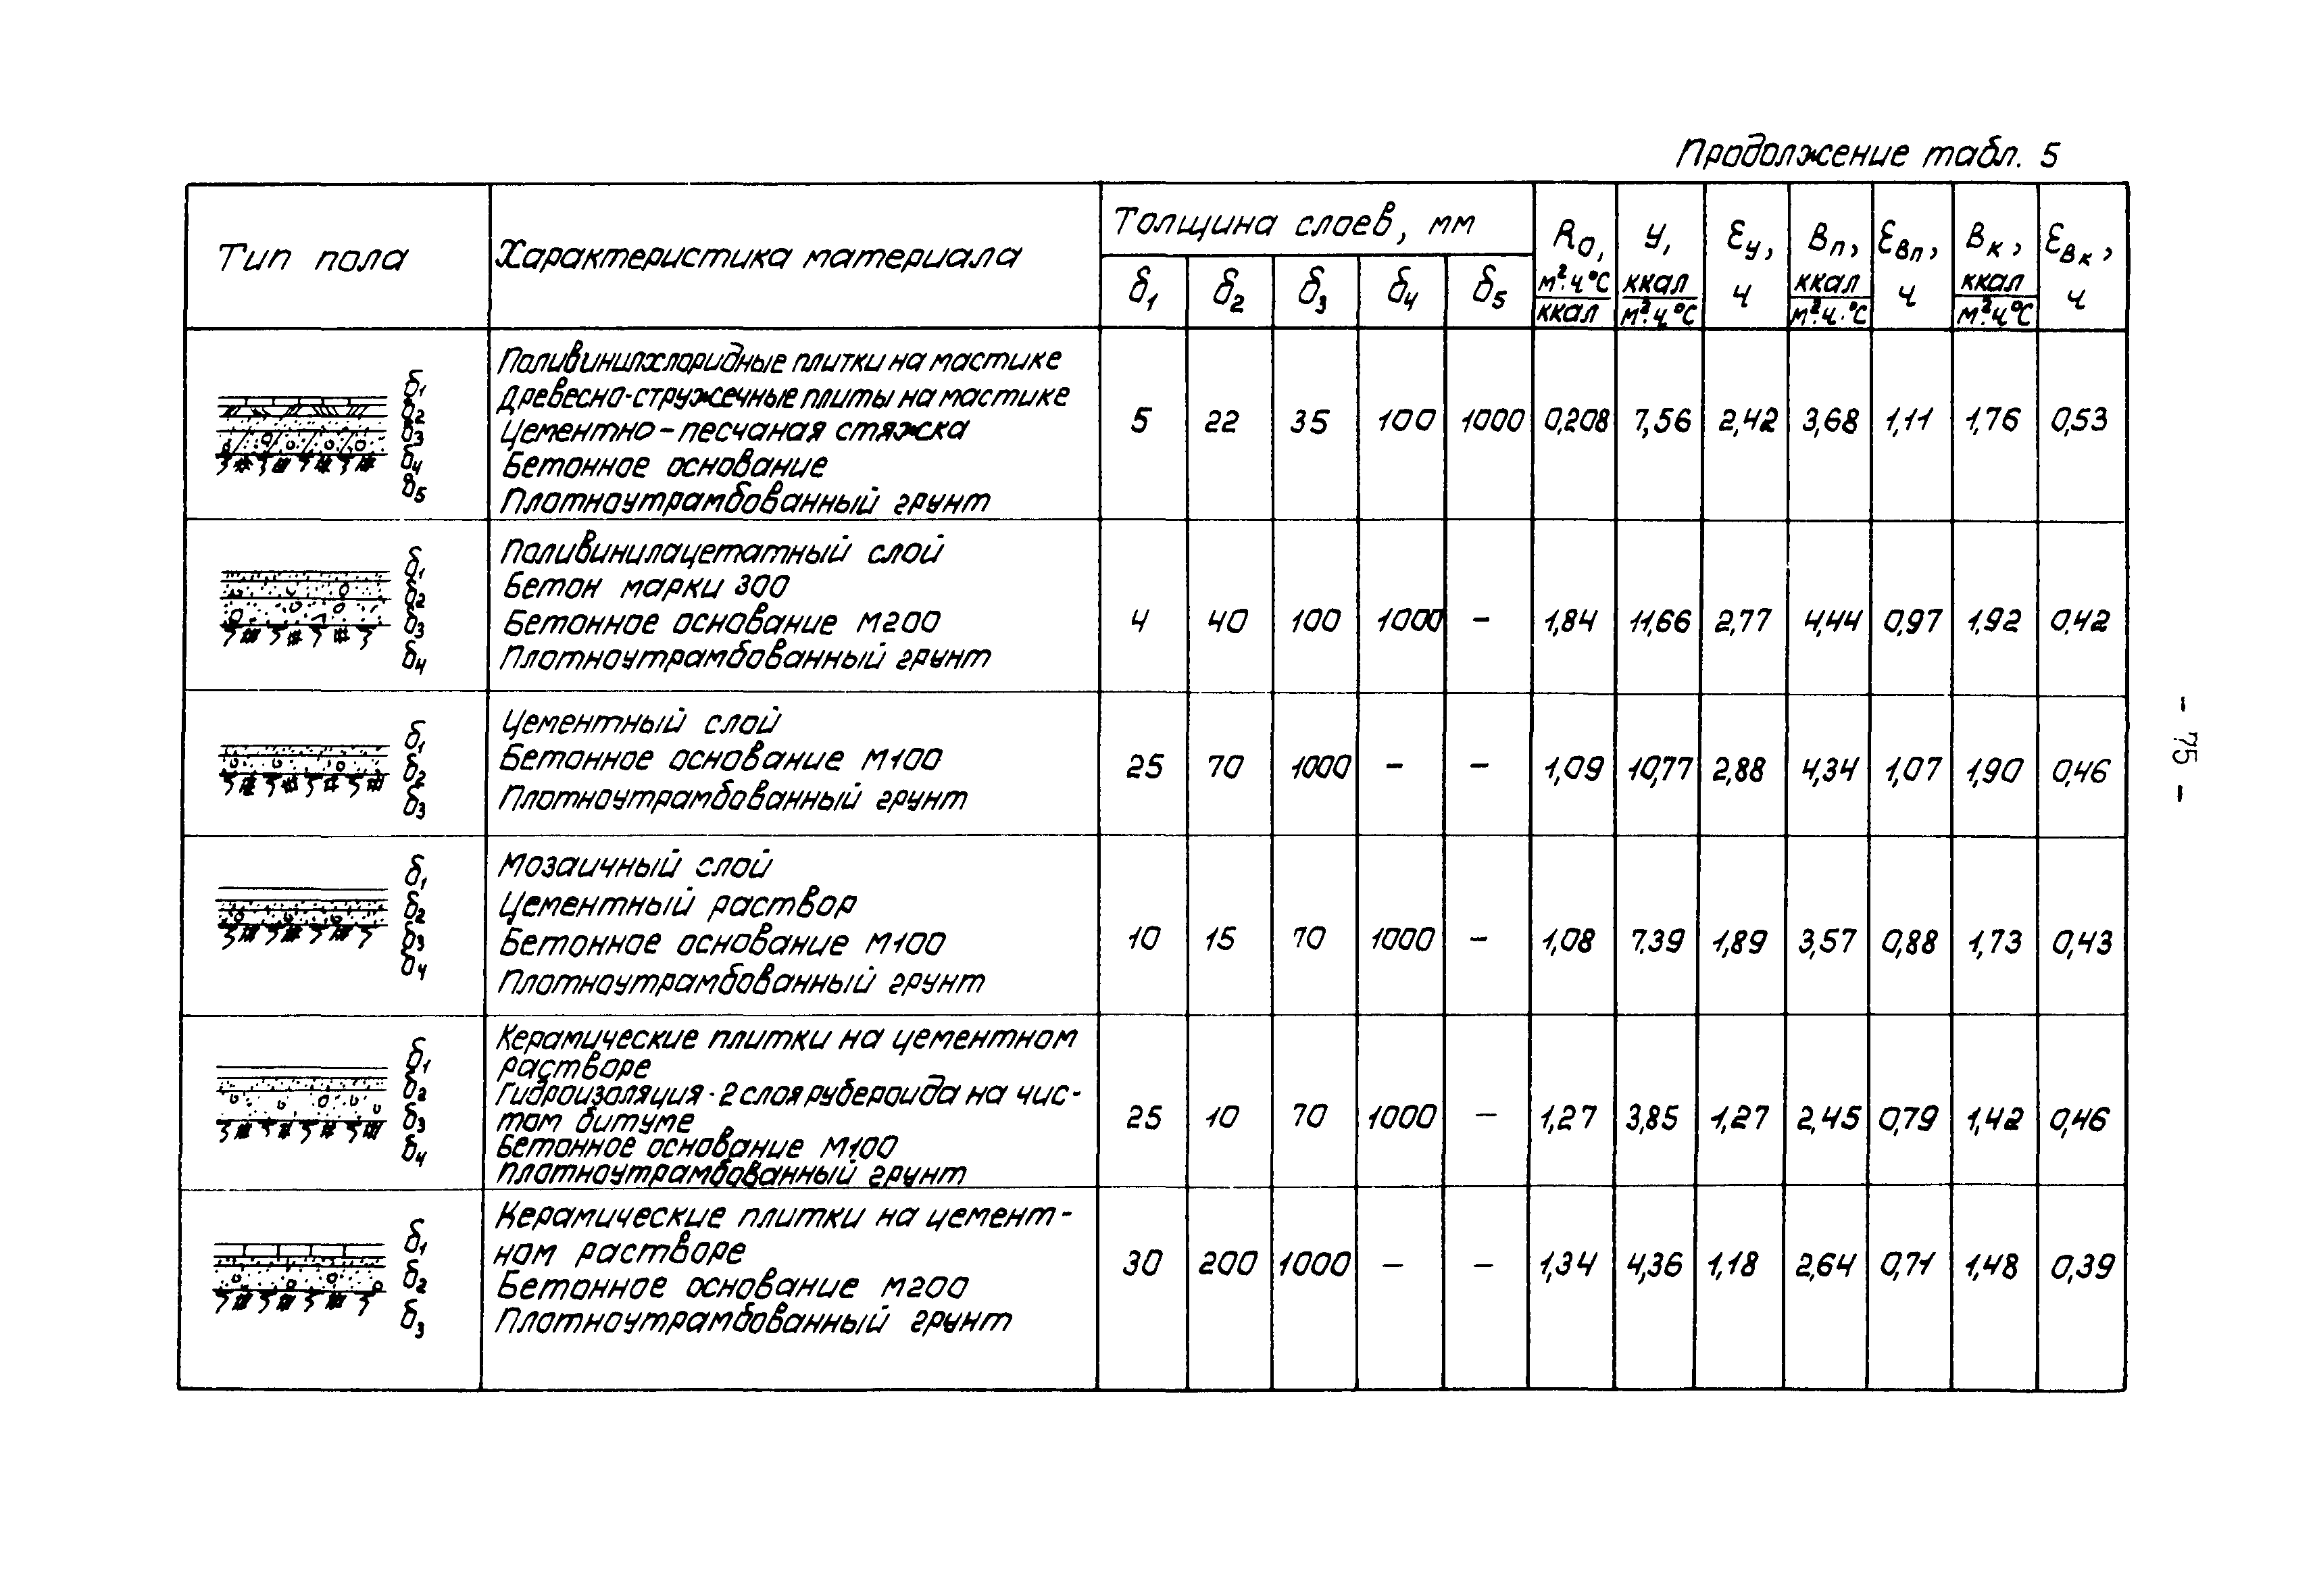 Продолжение табл. 5
Тип пола
Характеристика материала
Толщина слоев, мм
δ1 δ2 δ3 δ4 δ5
R0, м²·ч·°С/ккал
У, ккал/м²·ч·°С
εу, ч
Вп, ккал/м²·ч·°С
εВп, ч
Вк, ккал/м²·ч·°С
εВк, ч
δ1
δ2
δ3
δ4
δ5
Поливинилхлоридные плитки на мастике
Древесно-стружечные плиты на мастике
Цементно-песчаная стяжска
Бетонное основание
Плотноутрамбованный грунт
5 22 35 100 1000 0,208 7,56 2,42 3,68 1,11 1,76 0,53
δ1
δ2
δ3
δ4
Поливинилацетатный слой
Бетон марки 300
Бетонное основание М200
Плотноутрамбованный грунт
4 40 100 1000 – 1,84 11,66 2,77 4,44 0,97 1,92 0,42
δ1
δ2
δ3
Цементный слой
Бетонное основание М100
Плотноутрамбованный грунт
25 70 1000 – – 1,09 10,77 2,88 4,34 1,07 1,90 0,46
δ1
δ2
δ3
δ4
Мозаичный слой
Цементный раствор
Бетонное основание М100
Плотноутрамбованный грунт
10 15 70 1000 – 1,08 7,39 1,89 3,57 0,88 1,73 0,43
δ1
δ2
δ3
δ4
Керамические плитки на цементном
растворе
Гидроизоляция - 2 слоя рубероида на чис-
том битуме
Бетонное основание М100
Плотноутрамбованный грунт
25 10 70 1000 – 1,27 3,85 1,27 2,45 0,79 1,42 0,46
δ1
δ2
δ3
Керамические плитки на цемент-
ном растворе
Бетонное основание М200
Плотноутрамбованный грунт
30 200 1000 – – 1,34 4,36 1,18 2,64 0,71 1,48 0,39
- 75 -